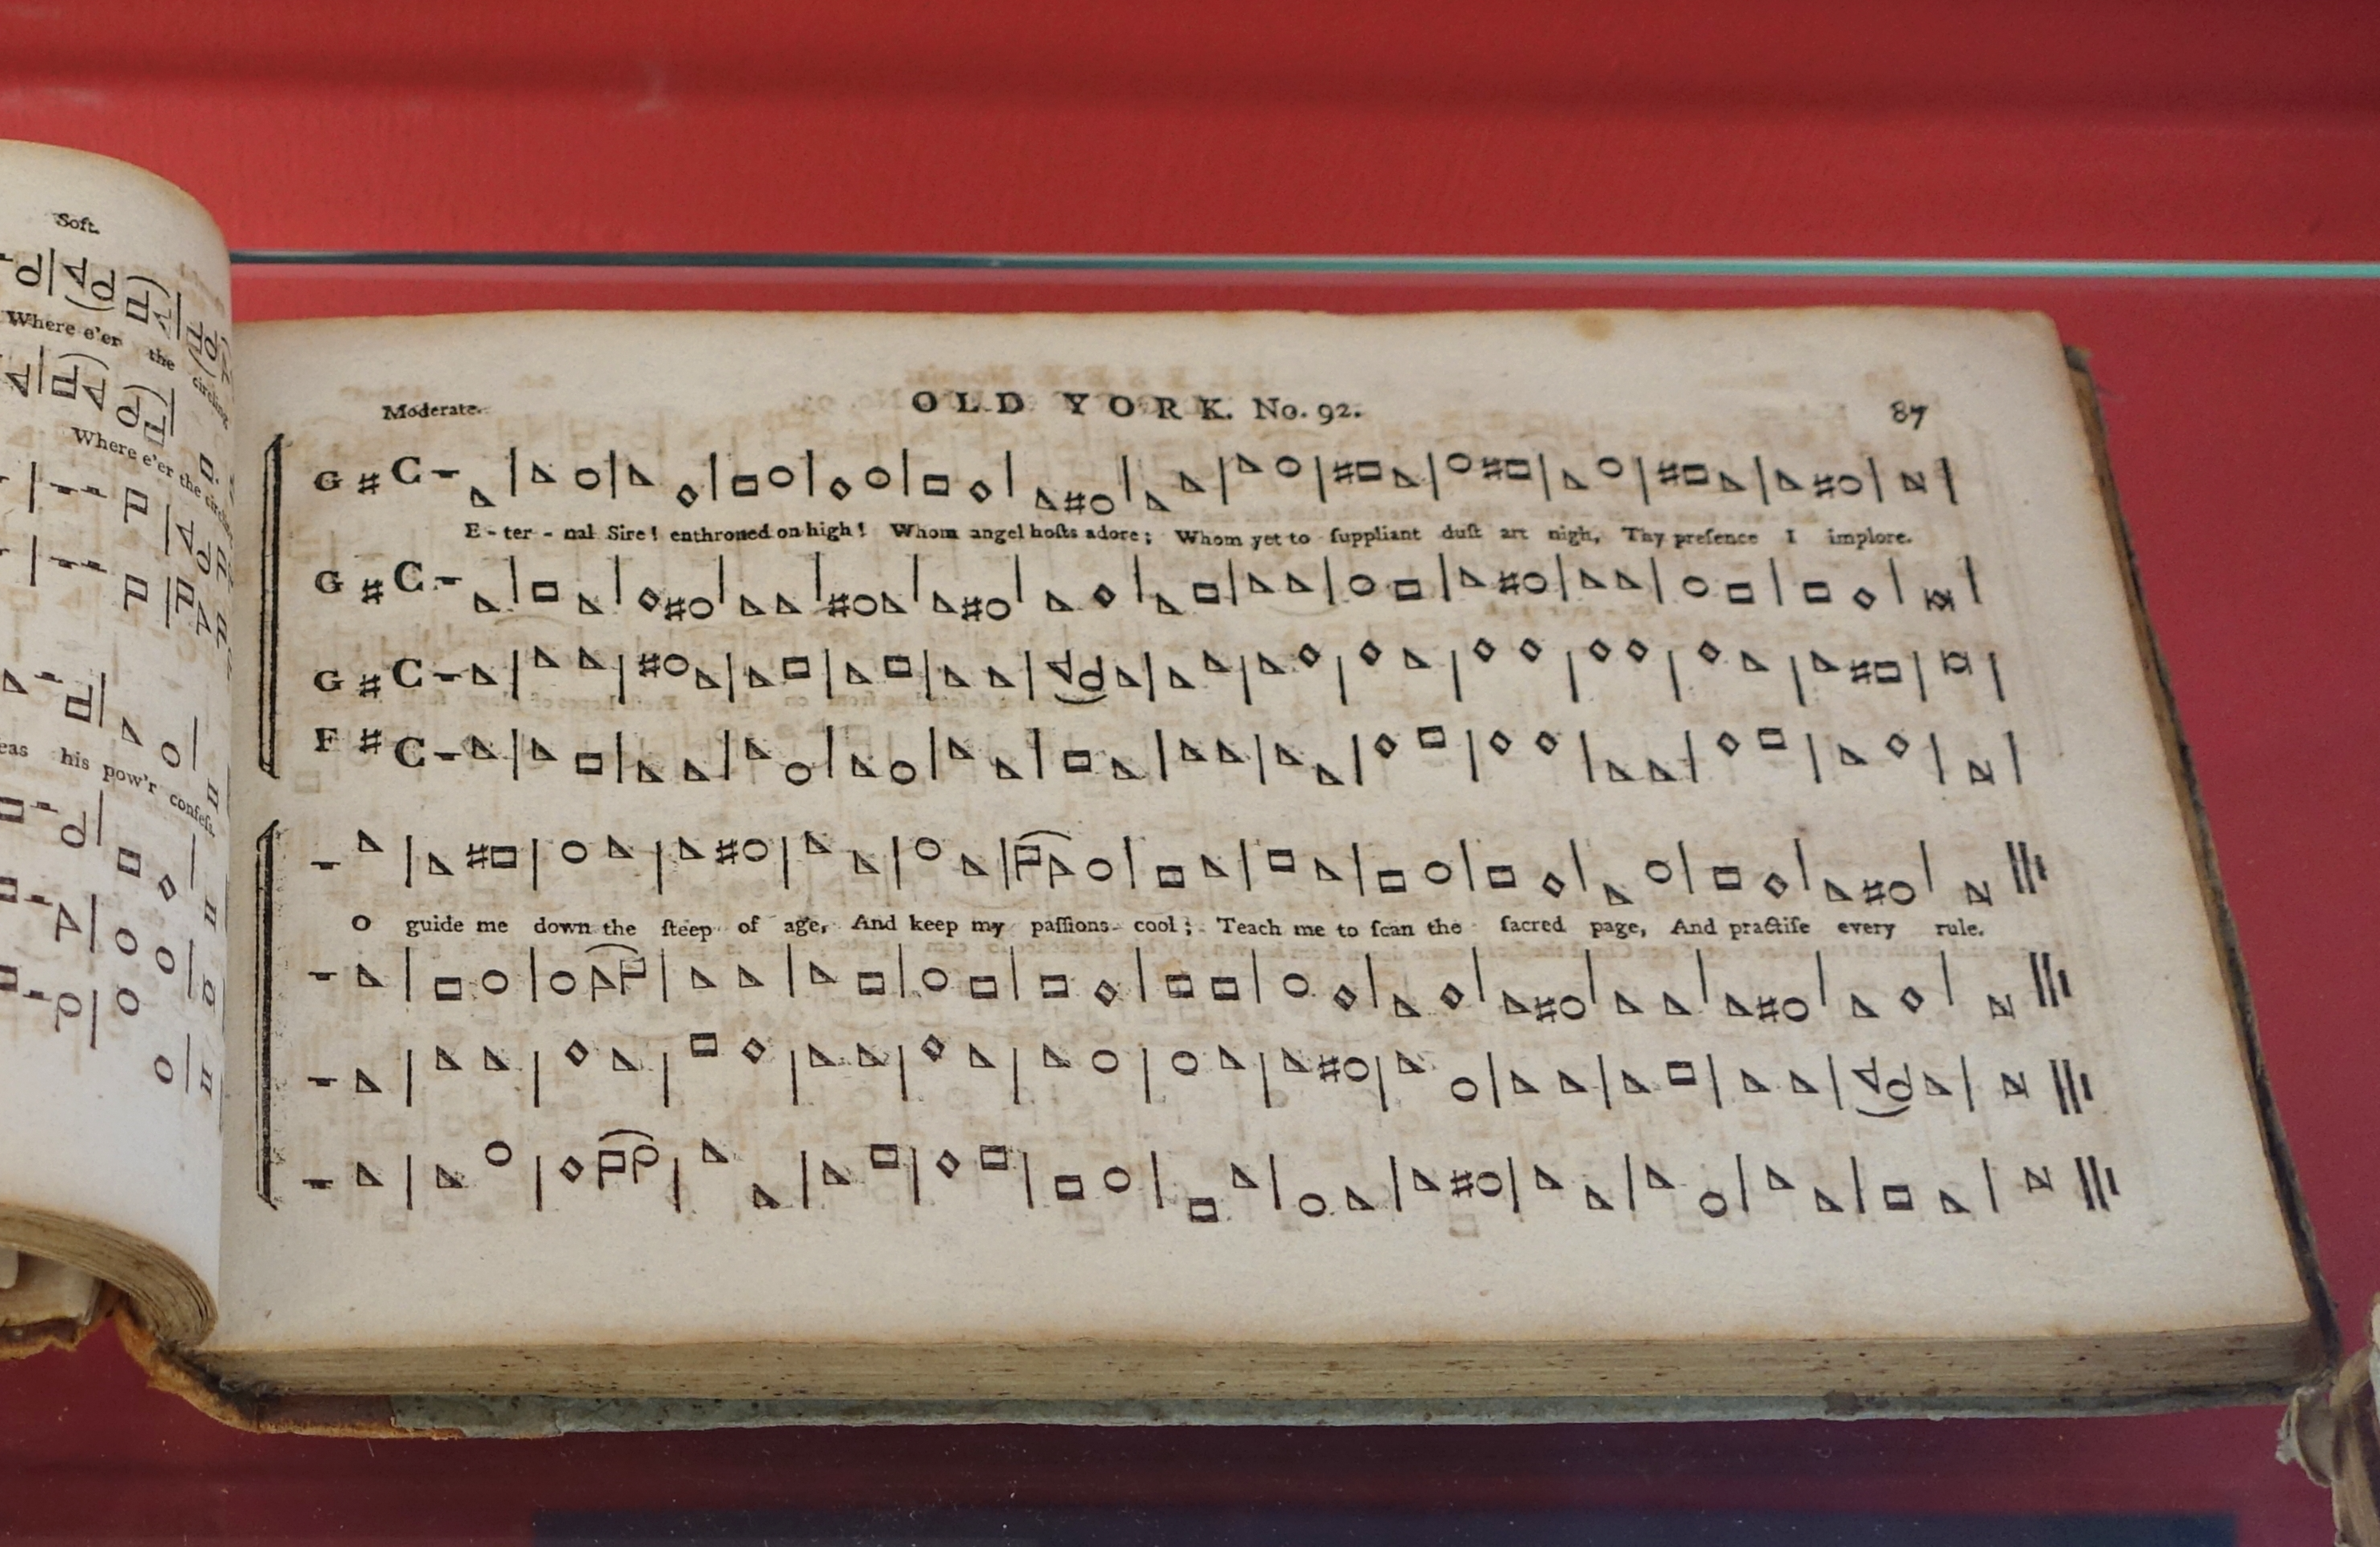 Soft.
Where e'er the circling
Where e'er the
eas his pow'r confess
Moderate. OLD YORK. No. 92. 87
G # C
E - ter - nal Sire! enthroned on high! Whom angel hoſts adore; Whom yet to ſuppliant duſt art nigh, Thy preſence I implore.
G # C
G # C
F # C
O guide me down the ſteep of age, And keep my paſſions cool; Teach me to ſcan the ſacred page, And practiſe every rule.